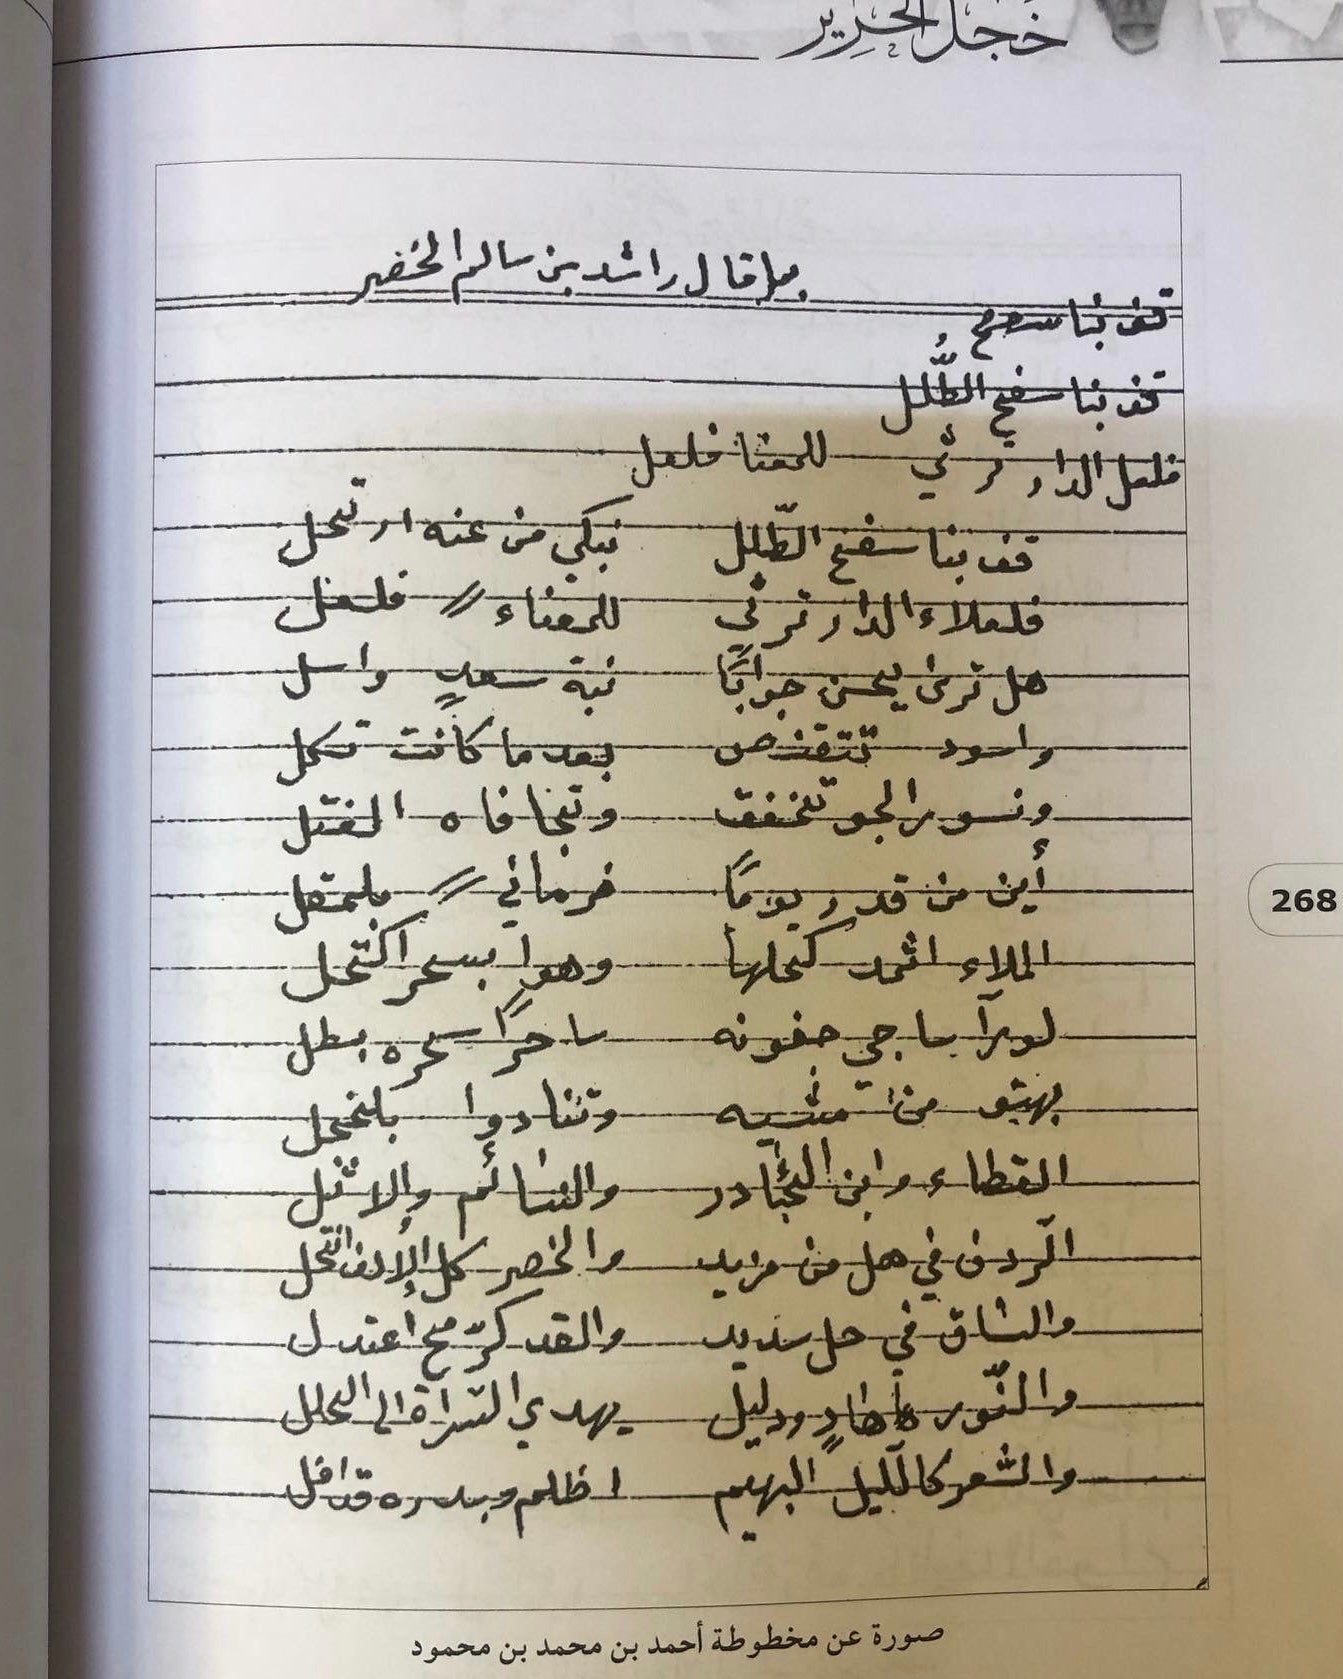 خجل الحرير
مما قال راشد بن سالم الخضر
قف بنا سفح
قف بنا سفح الطُّلل
فلعل الدار ترثي للمعنا فلعل
قف بنا سفح الطّلل نبكي من عنه ارتحل
فلعلاء الدار ترثي للمعناء // فلعل
هل ترى يحسن جوابًا نبة سعدٍ واسل
واسود تتقنص بعد ما كانت تكل
ونسور الجو تخفق وتجافاه
أين من قدر يومًا فرماني // بلمقل
الملاء اثمد كحلها وهوا بسحر اكتحل
لورآ ساجي جفونه ساحرًا سحره بطل
بهتو من تمشيه وتنادوا بلخجل
القطاء وابن والنسائم والاثل
الّردف في هل من مزيد والخصر كل الإلف انتحل
والساق في حل سديد والقد كرّمح اعتدل
والنّور هاطادٍ ودليل يهدي السراة الى الحلل
والشعر كالّليل البهيم اظلم وبدره قد افل
268
صورة عن مخطوطة أحمد بن محمد بن محمود